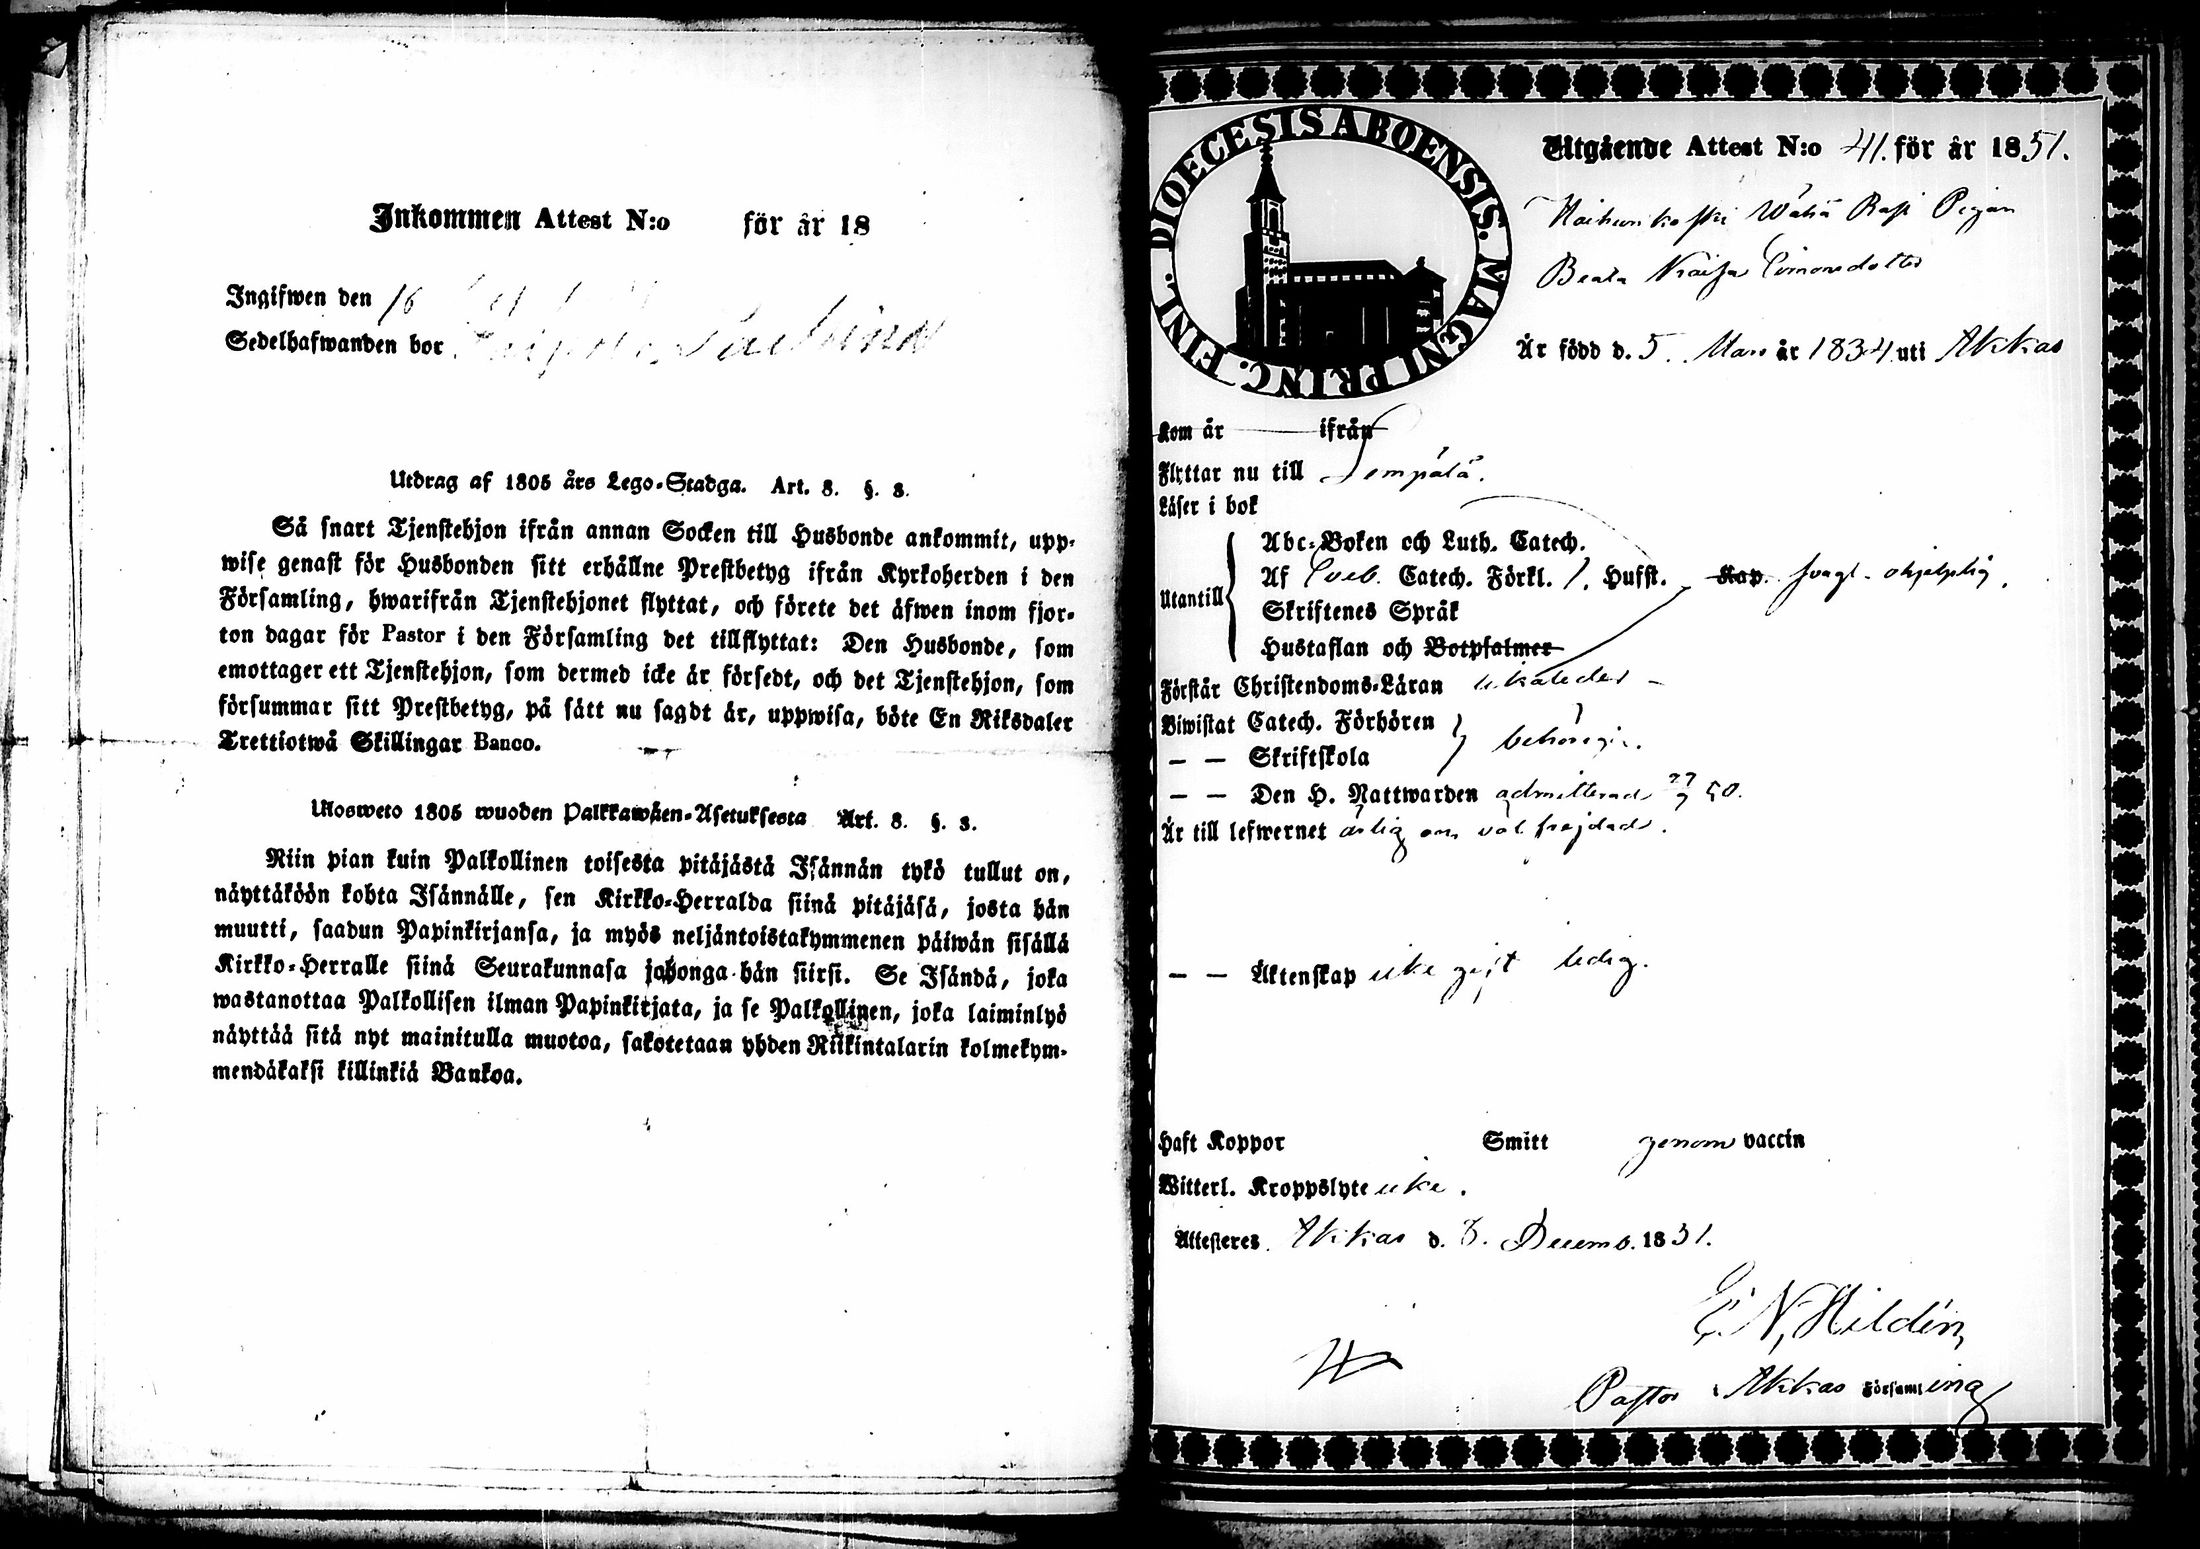 Inkommen Attest N:o för år 18
Ingifwen den 16
Sedelhafwanden bor
Utdrag af 1805 års Lego-Stadga. Art. 8. §. 3.
Så snart Tjenstehjon ifrån annan Socken till Husbonde ankommit, upp-
wise genast för Husbonden sitt erhållne Prestbetyg ifrån Kyrkoherden i den
Församling, hwarifrån Tjenstehjonet flyttat, och förete det äfwen inom fjor-
ton dagar för Pastor i den Församling det tillflyttat: Den Husbonde, som
emottager ett Tjenstehjon, som dermed icke är försedt, och det Tjenstehjon, som
försummar sitt Prestbetyg, på sätt nu sagdt är, uppwisa, böte En Riksdaler
Trettiotwå Skillingar Banco.
Ulosweto 1805 wuoden Palkkawäen-Asetuksesta Art. 8. §. 3.
Niin pian kuin Palkollinen toisesta pitäjästä Isännän tykö tullut on,
näyttäköön kohta Isännälle, sen Kirkko-Herralda siinä pitäjäsä, josta hän
muutti, saadun Papinkirjansa, ja myös neljäntoistakymmenen päiwän sisällä
Kirkko-Herralle siinä Seurakunnasa johonga hän siirsi. Se Isändä, joka
wastanottaa Palkollisen ilman Papinkirjata, ja se Palkollinen, joka laiminlyö
näyttää sitä nyt mainitulla muotoa, sakotetaan yhden Riikintalarin kolmekym-
mendäkaksi killinkiä Bankoa.
DIOECESIS ABOENSIS. MAGNI PRINC. FINL.
Utgående Attest N:o 41. för år 1851.
Wähä Rasi Pigan
Beata Kaisa Simonsdotter
Är född d. 5. Mars år 1834 uti Akkas
Kom år ifrån
Flyttar nu till Lempälä.
Läser i bok
Utantill
Abc-Boken och Luth. Catech.
Af Sveb. Catech. Förkl. /. Hufst. Kap.
Skriftenes Språk
Hustaflan och Botpsalmer
Förstår Christendoms-Läran
Biwistat Catech. Förhören
— — Skriftskola behörigen.
— — Den H. Nattwarden admitterad 27/7 50.
Är till lefwernet ärlig och väl frejdad.
— — Äktenskap icke gift ledig.
Haft Koppor Smitt genom vaccin
Witterl. Kroppslyte icke.
Attesteres Akkas d. 8. Decemb. 1851.
E. N. Hildén,
Pastor i Akkas Församling